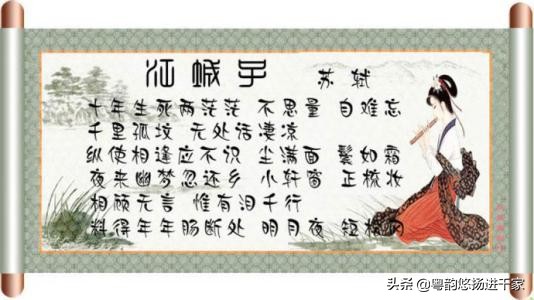 江城子 苏轼
十年生死两茫茫 不思量 自难忘
千里孤坟 无处话凄凉
纵使相逢应不识 尘满面 鬓如霜
夜来幽梦忽还乡 小轩窗 正梳妆
相顾无言 惟有泪千行
料得年年肠断处 明月夜 短松冈
头条 @粤韵悠扬进千家